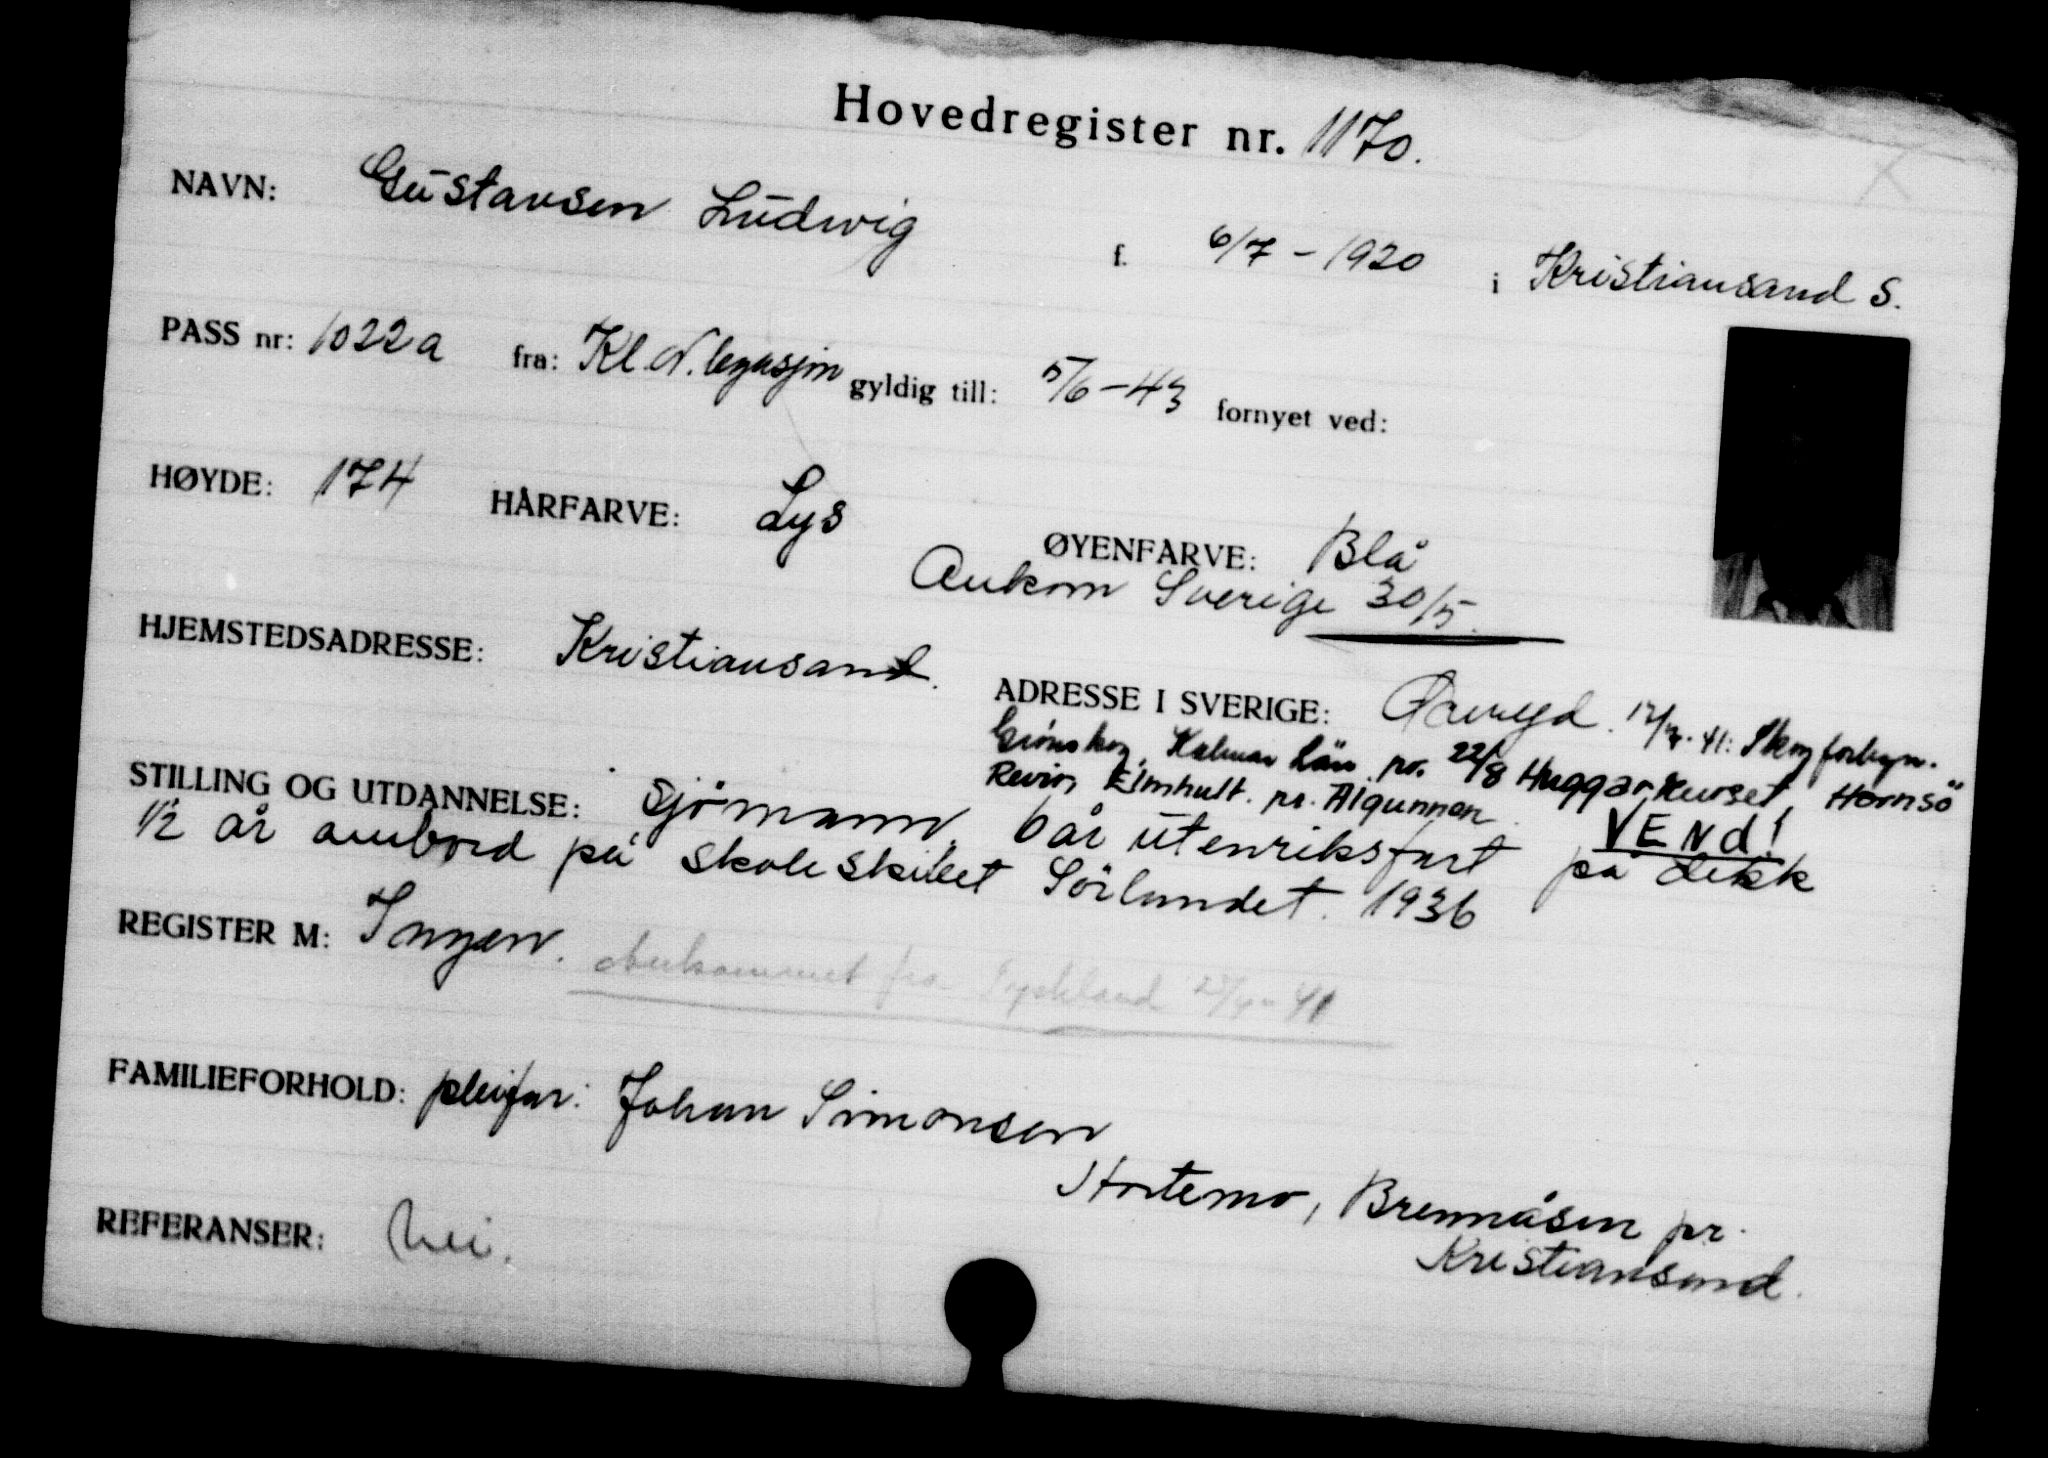 Hovedregister nr. 1170.
NAVN: Gustavsen Ludwig f. 6/7 - 1920 i Kristiansand S.
PASS nr: 1022a fra: Kl. N. legasjon gyldig till: 5/6 - 43 fornyet ved:
HØYDE: 174 HÅRFARVE: Lys ØYENFARVE: Blå
Ankom Sverige 30/5.
HJEMSTEDSADRESSE: Kristiansand. ADRESSE I SVERIGE: Öreryd. 41: Skogforlegn.
Grönskog, Kalmar Län pr. 22/8 Huggarkurset, Hornsö
Revir, Elmhult. pr. Algunnen. VENd!
STILLING OG UTDANNELSE: Sjömann, 6 år utenriksfart på dekk
1/2 år ombord på skoleskibet Sörlandet. 1936
REGISTER M: Ingen. Ankommet fra Tyskland 41
FAMILIEFORHOLD: pleifar: Johan Simonsen
Hortemo, Brennåsen pr.
Kristiansand.
REFERANSER: Nei.